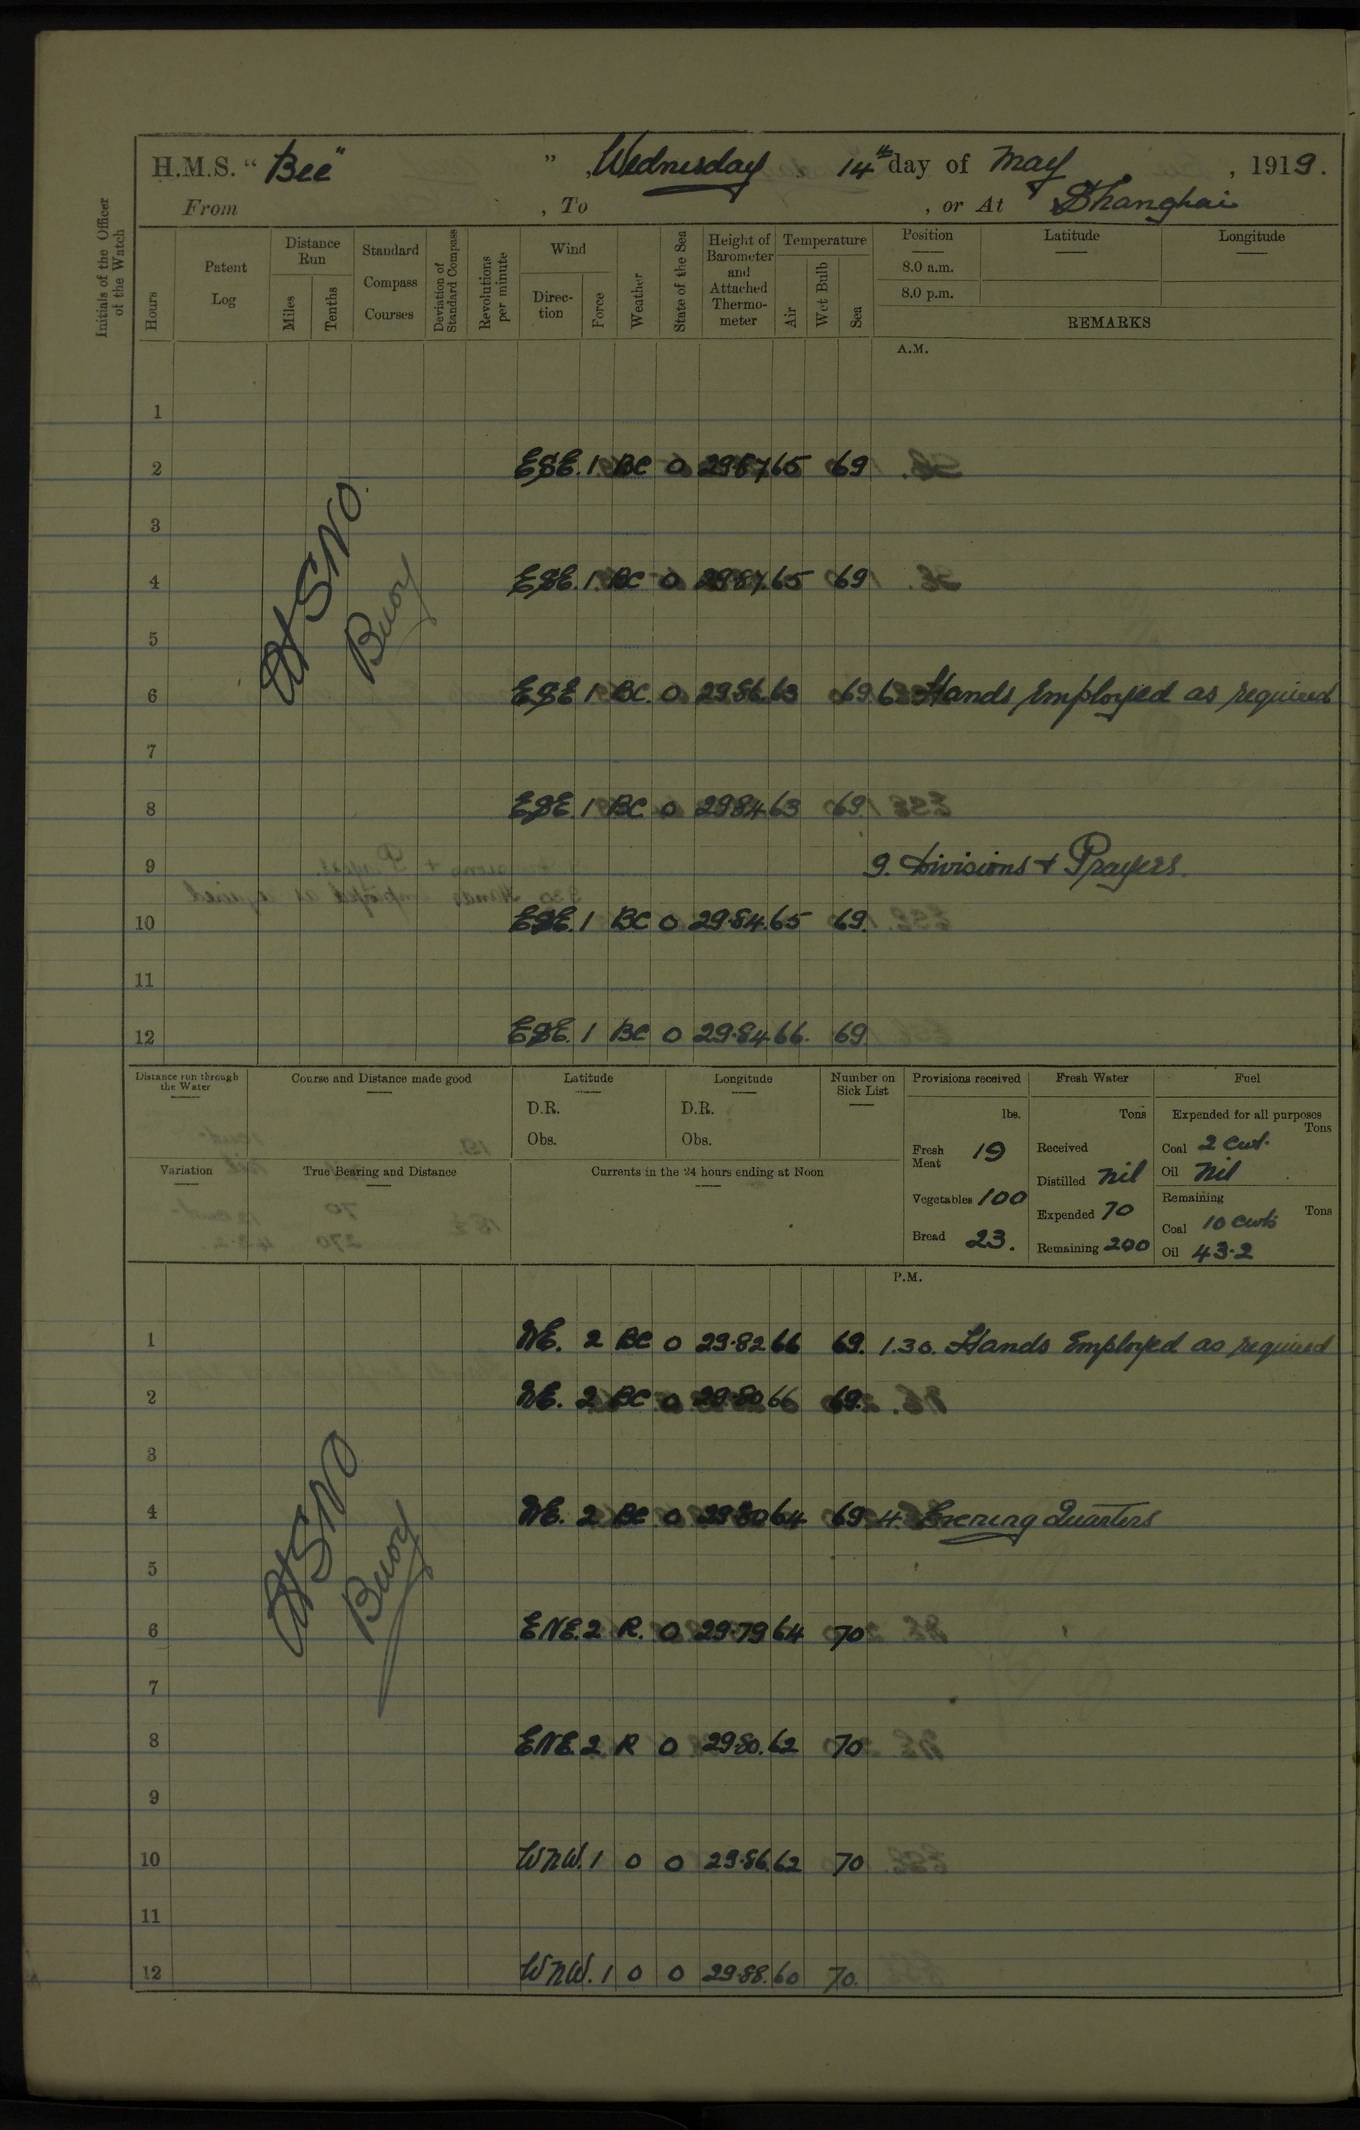 H.M.S. "Bee" ", Wednesday 14th day of May, 1919.
From , To , or At Shanghai
Initials of the Officer of the Watch
Hours
Patent Log
Distance Run
Miles
Tenths
Standard Compass Courses
Deviation of Standard Compass
Revolutions per minute
Wind
Direction
Force
Weather
State of the Sea
Height of Barometer and Attached Thermometer
Temperature
Air
Wet Bulb
Sea
Position
8.0 a.m.
8.0 p.m.
Latitude
Longitude
REMARKS
A.M.
1
2 ESE. 1 BC 0 29.87 65 69
3
4 ESE. 1 BC 0 29.87 65 69
5
6 ESE 1 BC. 0 29.86 63 69. 6 Hands Employed as required
7
8 ESE. 1 BC 0 29.84 63 69.
9 9. Divisions & Prayers.
10 ESE. 1 BC 0 29.84 65 69.
11
12 ESE. 1 BC 0 29.84 66. 69.
SNO
Buoy
Distance run through the Water
Course and Distance made good
Latitude
D.R.
Obs.
Longitude
D.R.
Obs.
Number on Sick List
Variation
True Bearing and Distance
Currents in the 24 hours ending at Noon
Provisions received
lbs.
Fresh Meat 19
Vegetables 100
Bread 23.
Fresh Water
Tons
Received
Distilled Nil
Expended 70
Remaining 200
Fuel
Expended for all purposes
Tons
Coal 2 cwt.
Oil Nil
Remaining
Tons
Coal 10 cwts
Oil 43.2
P.M.
1 NE. 2 BC 0 29.82 66 69. 1.30. Hands Employed as required
2 NE. 2 BC 0 29.80 66 69.
3
4 NE. 2 BC 0 29.80 64 69 4. Evening Quarters
5
6 ENE. 2 R. 0 29.79 64 70
7
8 ENE. 2 R 0 29.80. 62 70
9
10 WNW. 1 0 0 29.86. 62 70
11
12 WNW. 1 0 0 29.88. 60 70.
SNO
Buoy